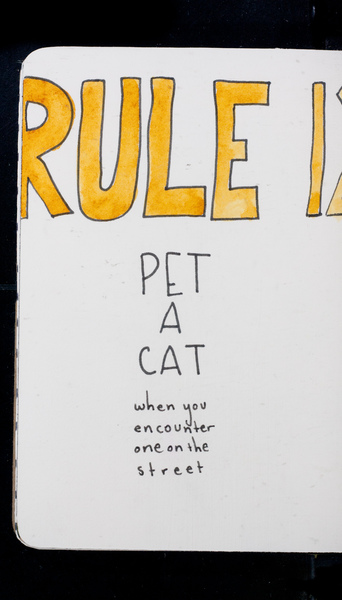 RULE 12
PET
A
CAT
when you
encounter
one on the
street